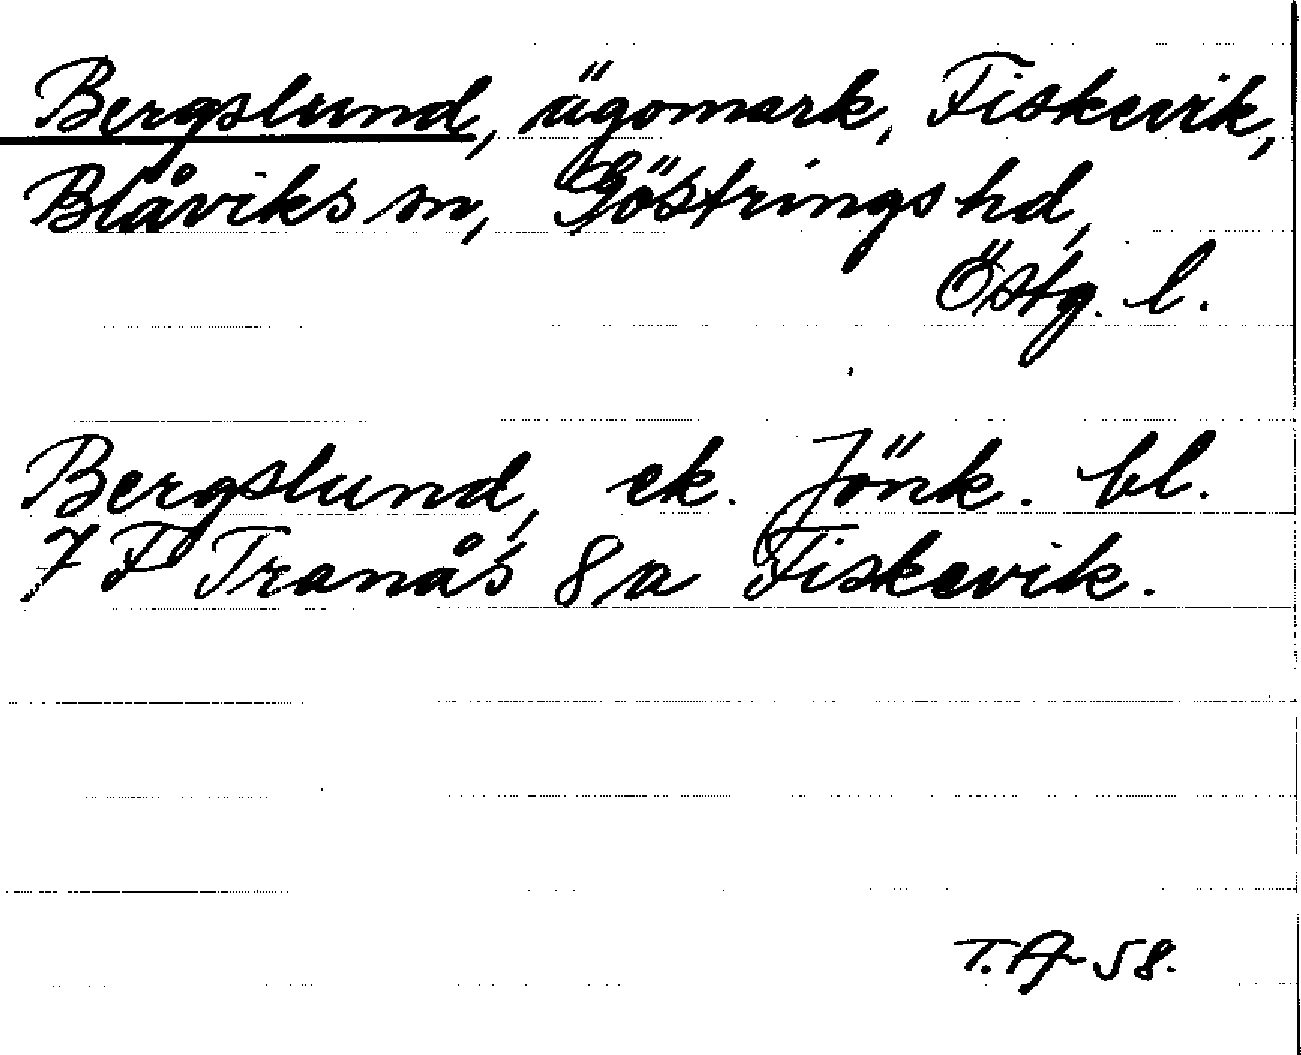 Bergslund, ägomark, Fiskevik,
Blåviks sn, Göstrings hd,
Östg. l.
Bergslund, ek. Jönk. bl.
7 F Tranås 8 a Fiskevik.
T. A-58.